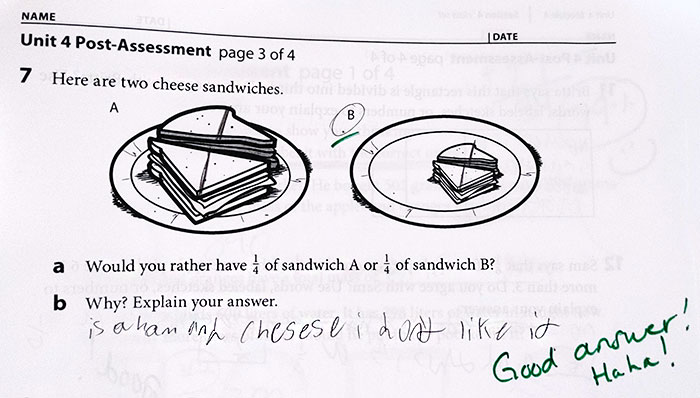 NAME
| DATE
Unit 4 Post-Assessment page 3 of 4
7 Here are two cheese sandwiches.
A
B
a Would you rather have 1/4 of sandwich A or 1/4 of sandwich B?
b Why? Explain your answer.
is a ham and chesese i dont like it
Good answer!
Haha!